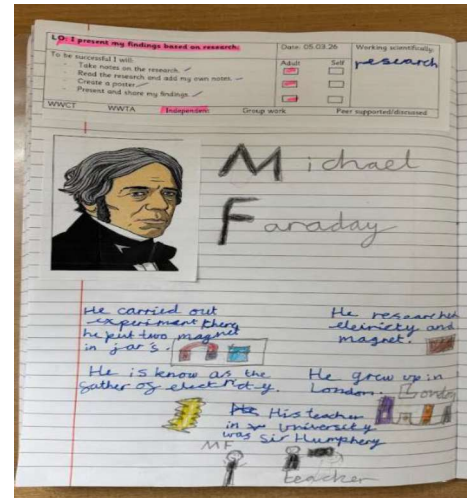 LO: I present my findings based on research.
Date: 05.03.26
Working scientifically:
research
To be successful I will:
Adult Self
- Take notes on the research.
- Read the research and add my own notes.
- Create a poster.
- Present and share my findings.
WWCT WWTA Independent Group work Peer supported/discussed
Michael
Faraday
He carried out
experiment there
he put two magnet
in jar's.
He researched
eleiricty and
magnet.
He is know as the
father of elect
He grew up in
London. London
His teacher
in University
was Sir Humphery
MF
teacher